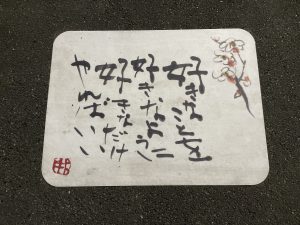 好きなことを
好きなように
好きなだけ
やればいい